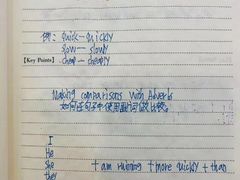 例: quick—quickly
slow—slowly
【Key Points】 cheap—cheaply
Making comparisons with Adverbs
如何在句子中使用副词做比较
I
He
She + am running + more quickly + than
they